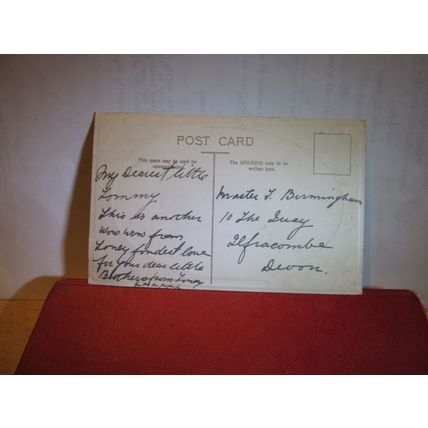 POST CARD
This space may be used for
The ADDRESS only to be
written here.
My Dearest little
Tommy
This is another
wow wow from
Toney fondest love
for your dear little
Brothers from Toney
xxxxxx
Master T. Birmingham
10 The Quay
Ilfracombe
Devon.